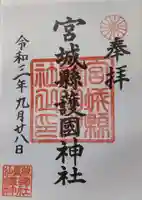 奉拝
宮城縣護國神社
令和三年九月廿八日